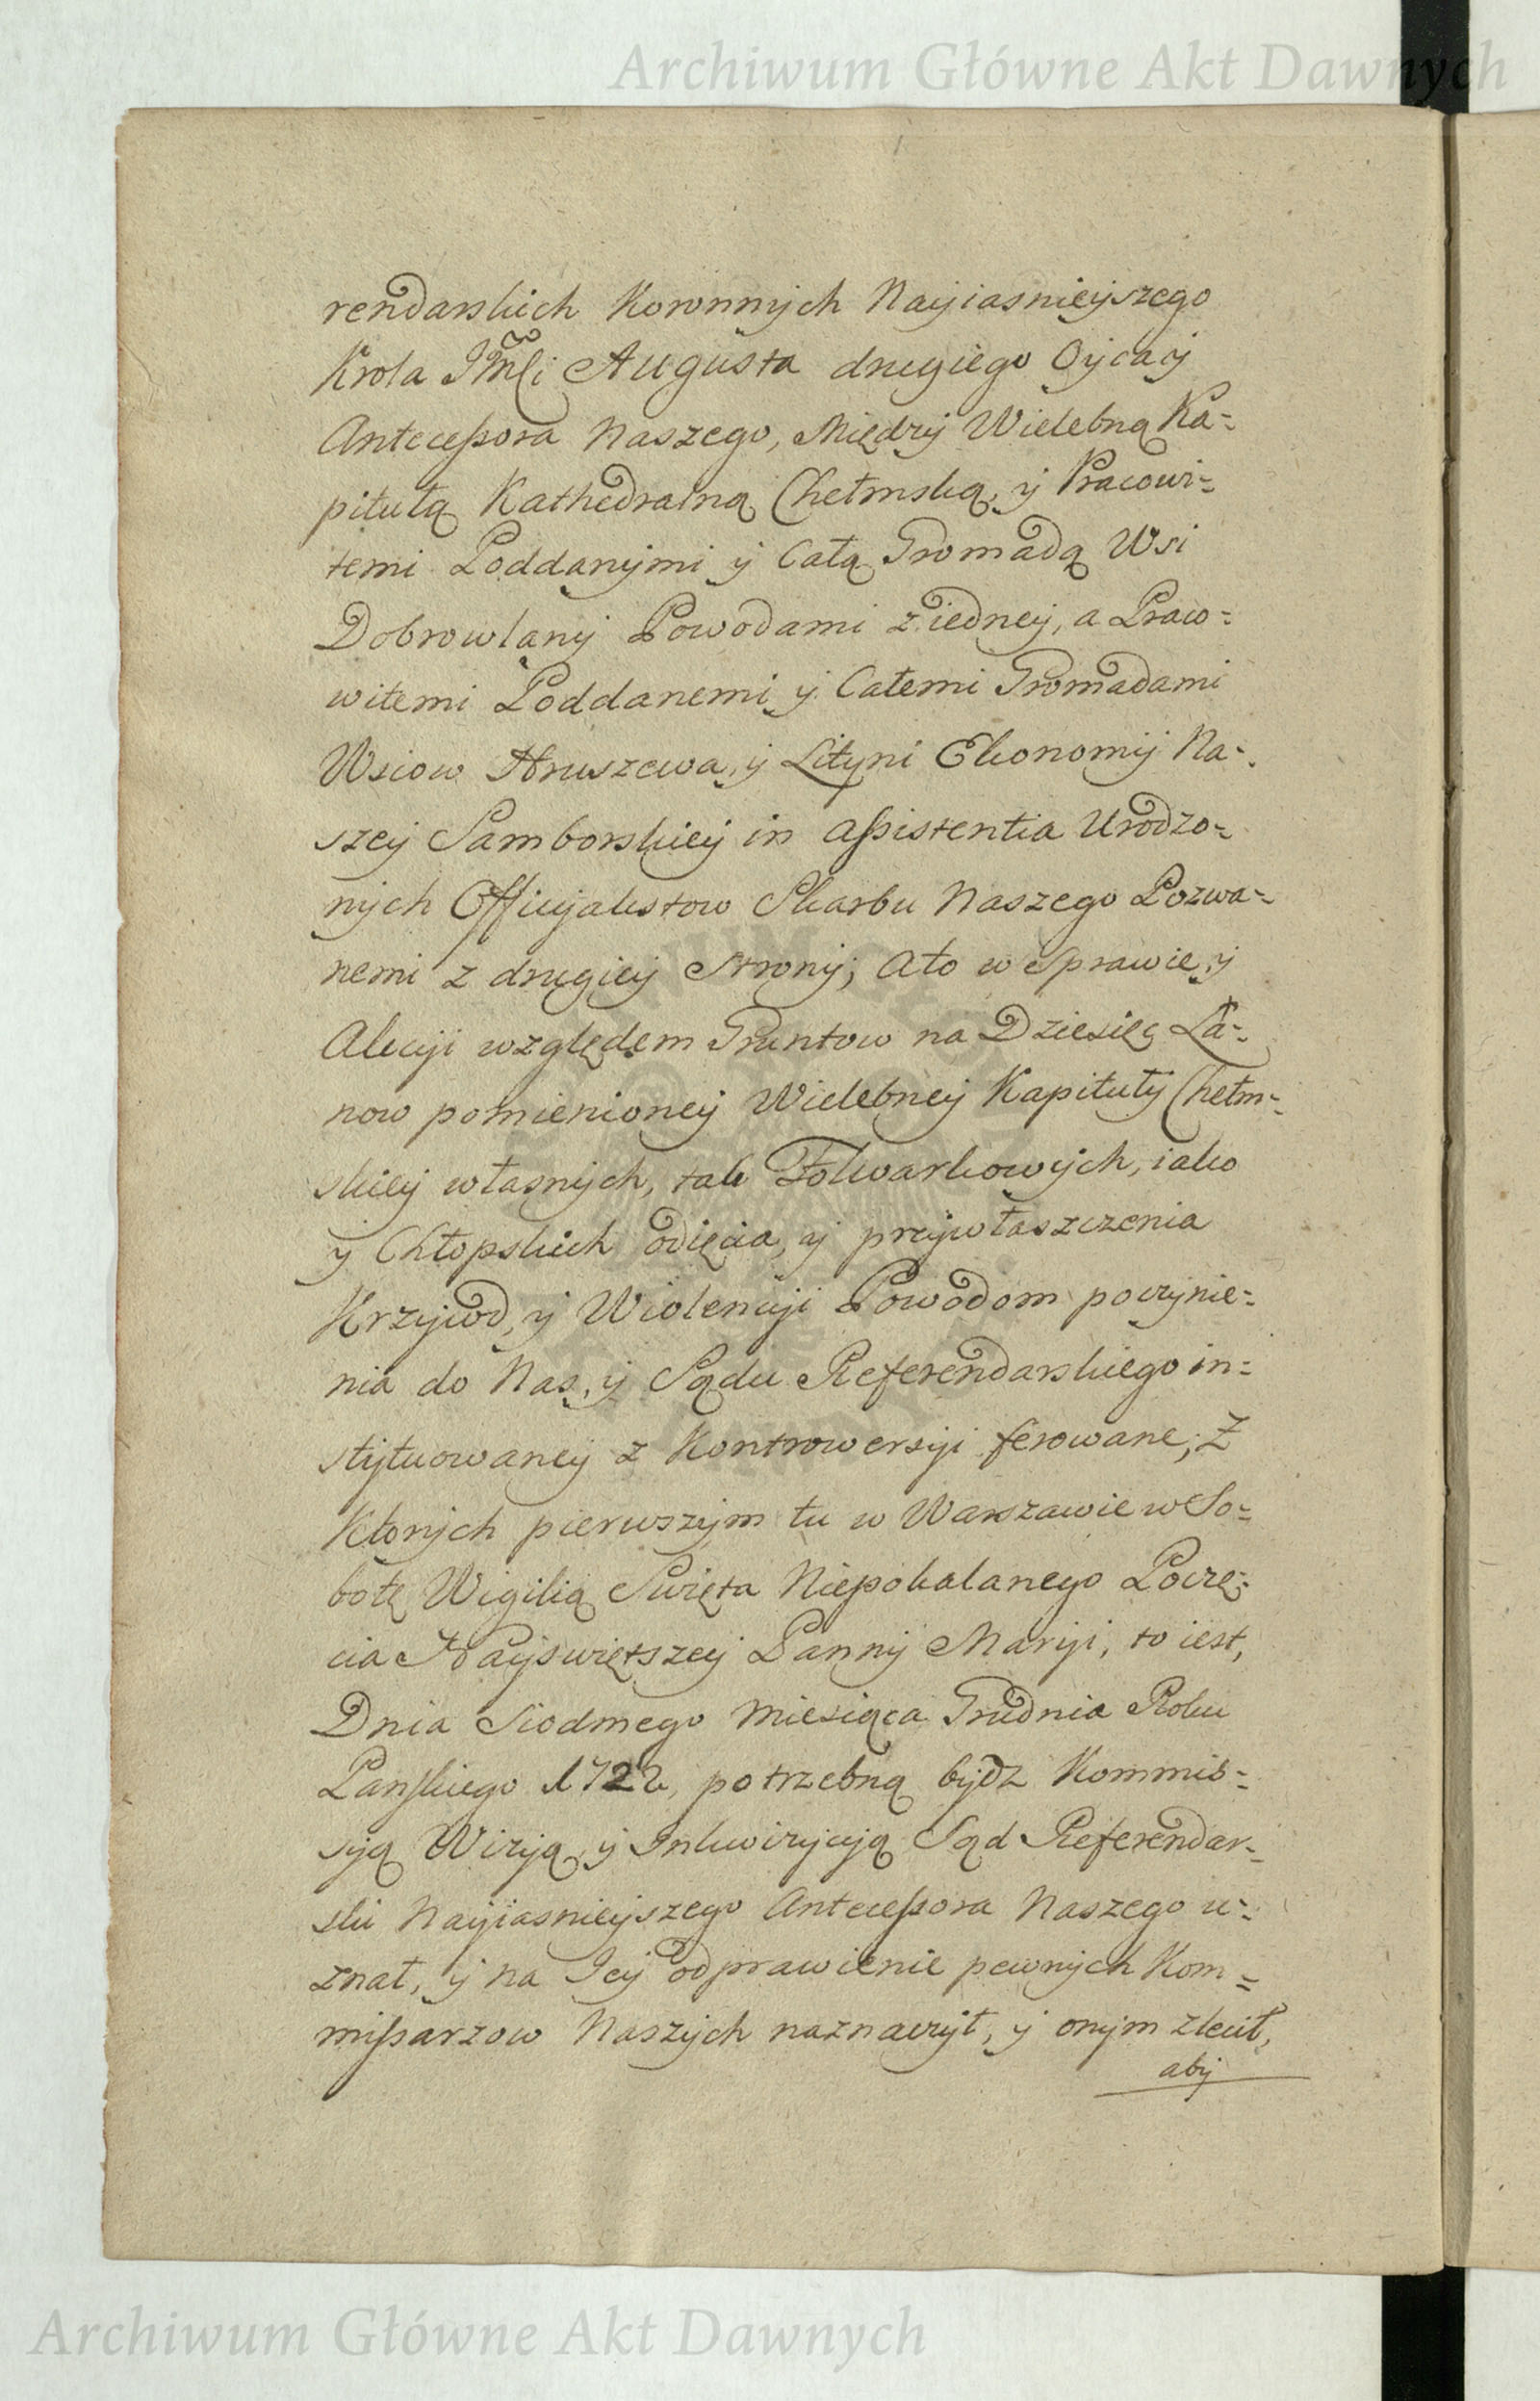 Archiwum Główne Akt Dawnych
rendarskich Koronnych Nayiasnieyszego
Krola JMsći Augusta drugiego Oyca y
Antecessora Naszego, Między Wielebną Ka=
pitułą Kathedralną Chełmską, y Pracowi=
temi Poddanymi y Całą Gromadą Wsi
Dobrowlany Powodami z iedney, a Praco=
witemi Poddanemi y Całemi Gromadami
Wsiow Hruszewa, y Lityni Ekonomij Na=
szey Samborskiey in assistentia Urodzo=
nych Officyalistow Skarbu Naszego Pozwa=
nemi z drugiey Strony; Ato w Sprawie, y
Akcyi względem Gruntow na Dziesięć Ła=
now pomienioney Wielebney Kapituły Chełm=
skiey własnych, tak Folwarkowych, iako
y Chłopskich odięcia, y przywłaszczenia
Krzywd, y Wiolencyi Powodom poczynie=
nia do Nas, y Sądu Referendarskiego in=
stytuowaney z Kontrowersyi ferowane; Z
Ktorych pierwszym tu w Warszawie w So=
botę Wigilią Swięta Niepokalanego Poczę=
cia Nayswiętszey Panny Maryi, to iest,
Dnia Siodmego Miesiąca Grudnia Roku
Panskiego 1722, potrzebną bydz Kommis=
syą Wizyą, y Inkwizycyą Sąd Referendar=
ski Nayiasnieyszego Antecessora Naszego u=
znał, y na Jey odprawienie pewnych Kom=
missarzow Naszych naznaczył, y onym zlecił,
aby
Archiwum Główne Akt Dawnych